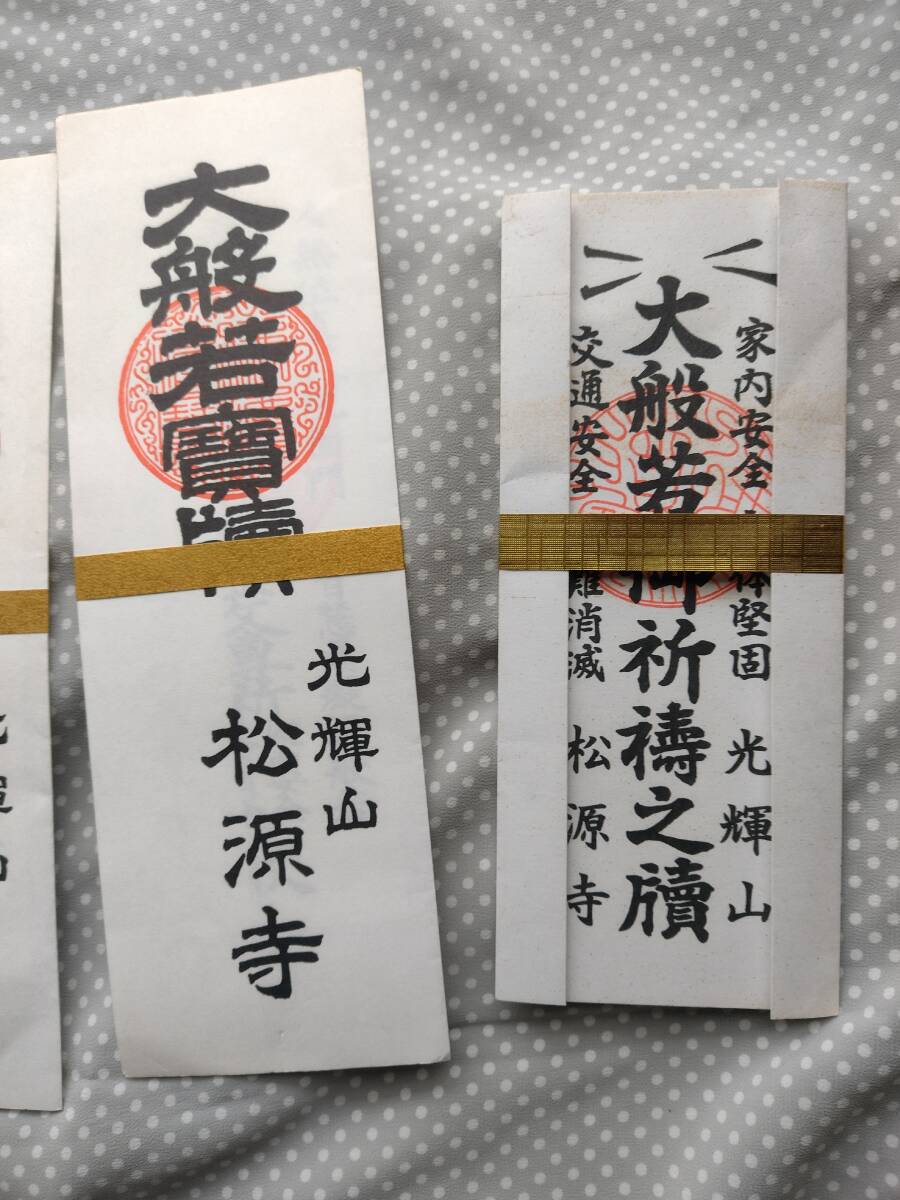 大般若寶牘
光輝山
松源寺
家内安全 体堅固 光輝山
大般若御祈禱之牘
交通安全 難消滅 松源寺